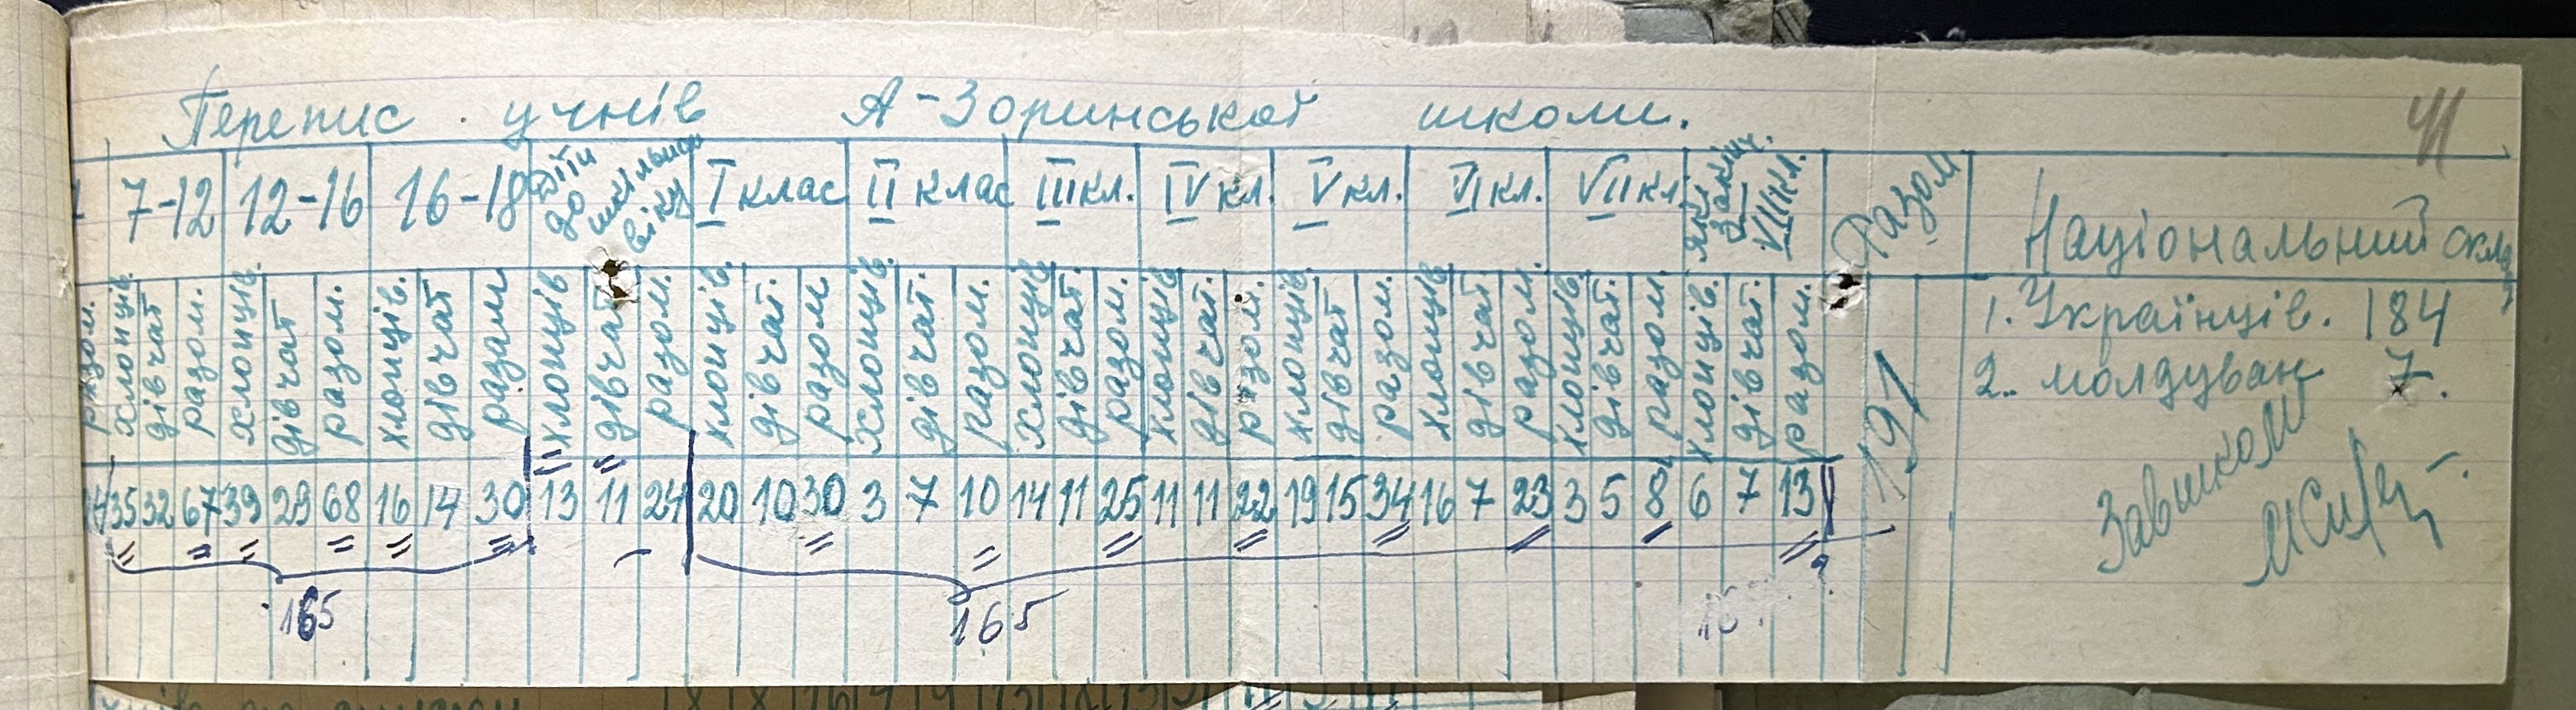 41
Перепис учнів А-Зоринської школи.
7-12 12-16 16-18 діти до шкільного віку I клас II клас III кл. IV кл. V кл. VI кл. VII кл. які закінч. VII кл. Разом Національний склад
разом. хлопців дівчат разом. хлопців. дівчат разом. хлопців. дівчат разам хлопців дівчат разом. хлопців. дівчат. разом хлопців. дівчат. разом. хлопців дівчат. разом. хлопців дівчат. разом. хлопців дівчат разом. хлопців дівчат разом. хлопців. дівчат. разом хлопців. дівчат. разом.
1. Українців. 184
2. молдуван 7.
35 32 67 39 29 68 16 14 30 13 11 24 20 10 30 3 7 10 14 11 25 11 11 22 19 15 34 16 7 23 3 5 8 6 7 13 191
Завшколи
165 165